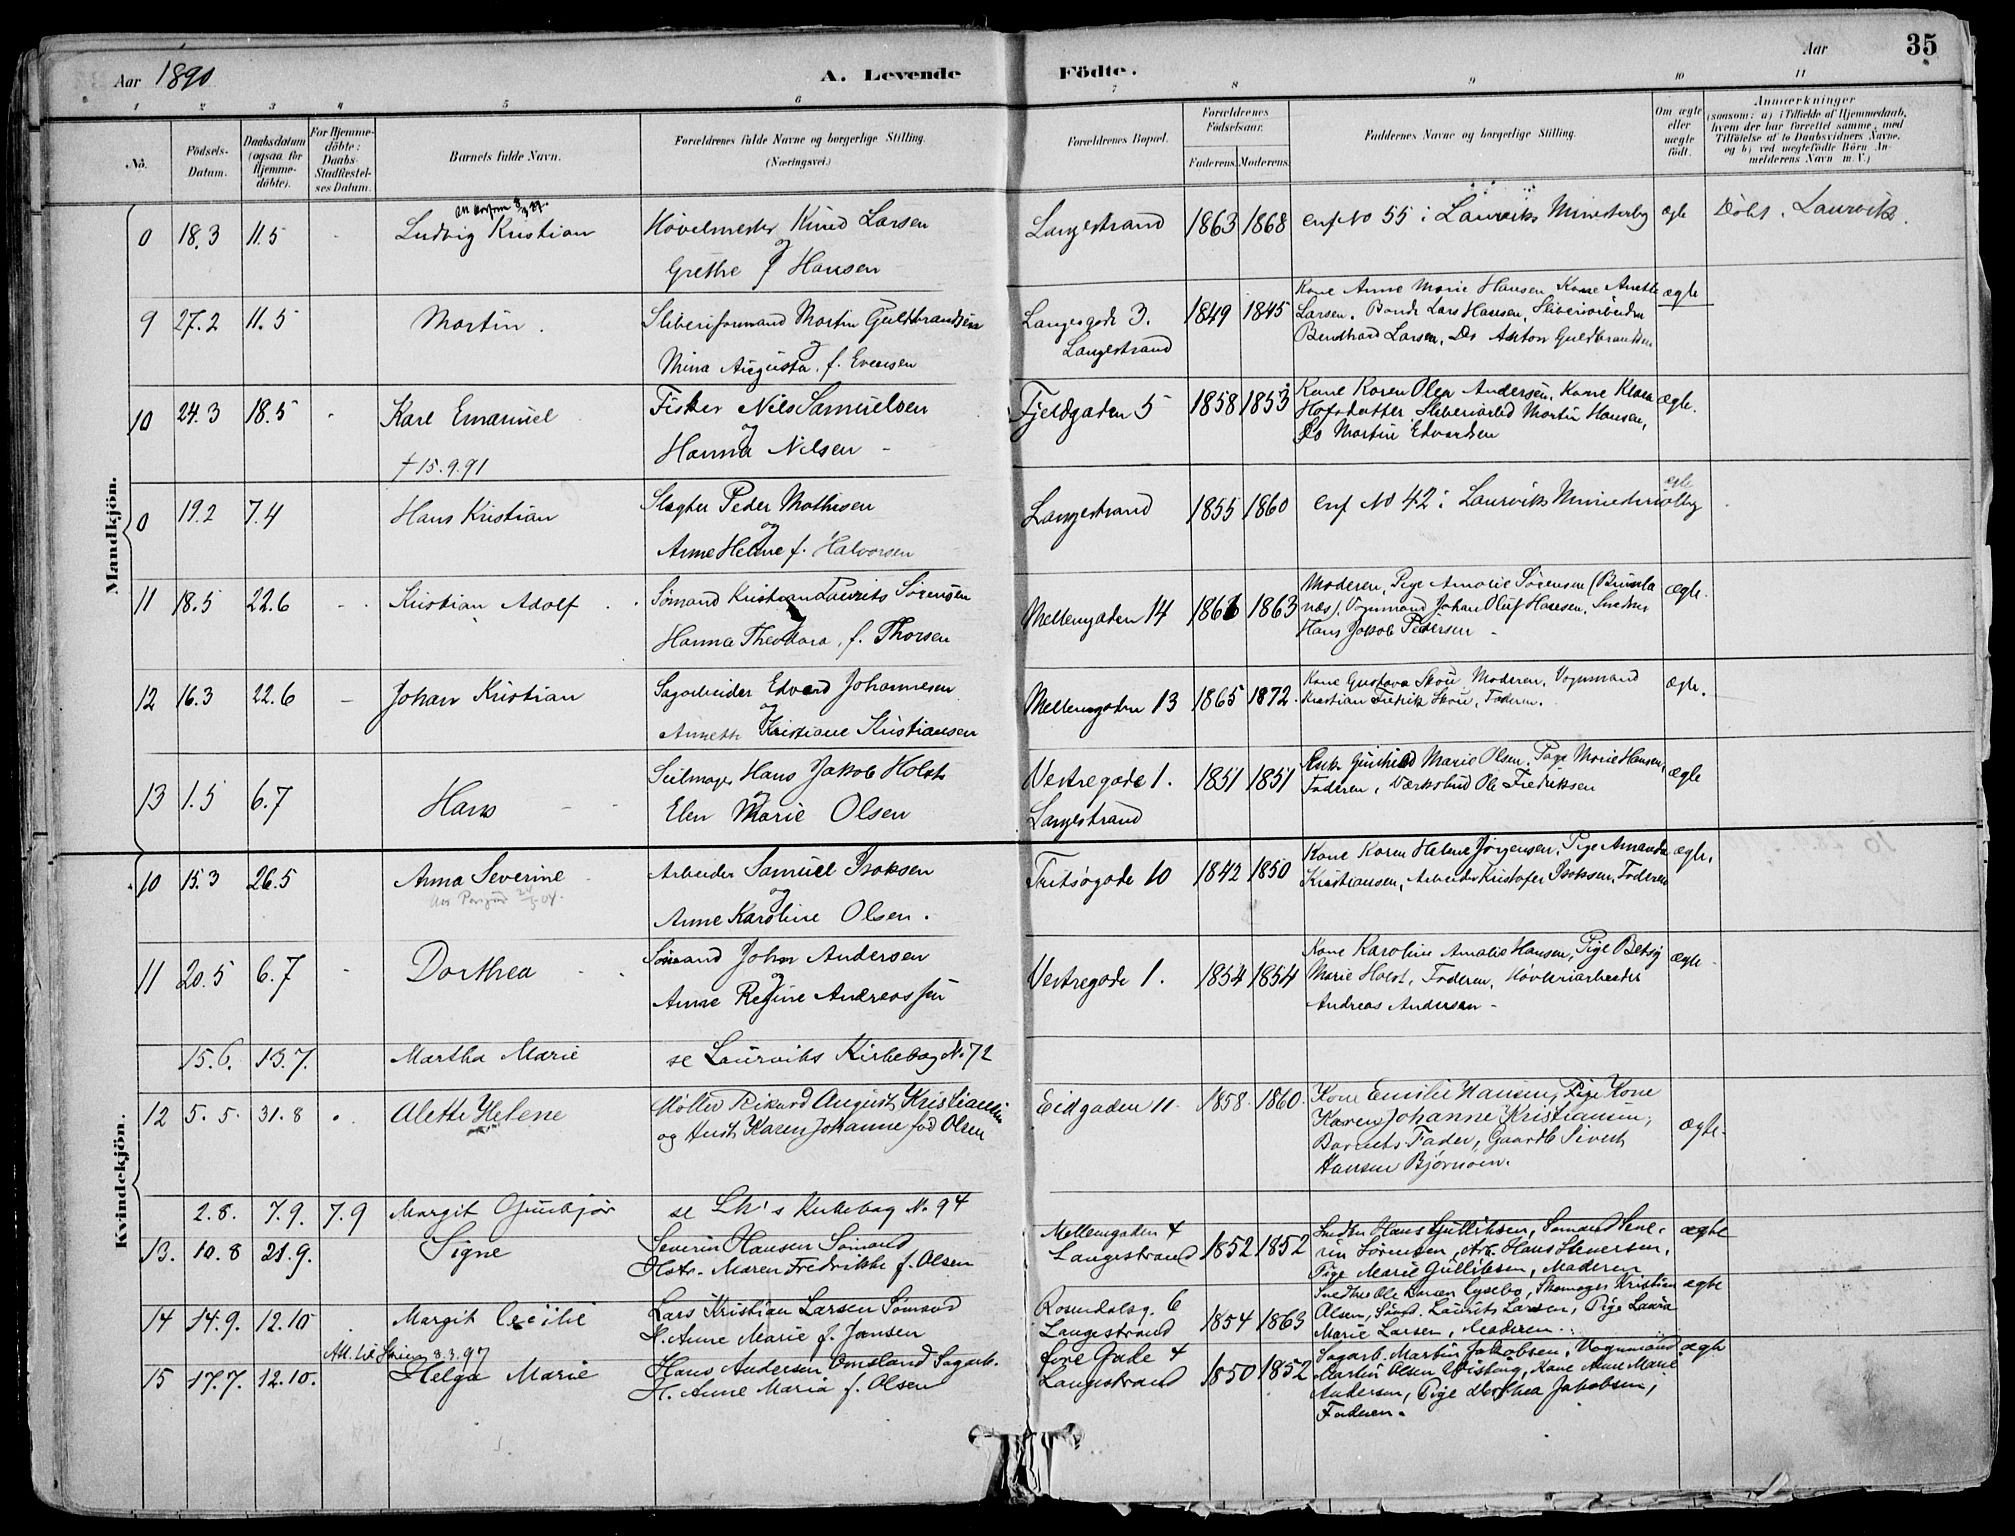 Aar 1890
A. Levende Födte.
Aar
35
1 2 3 4 5 6 7 8 9 10 11
Nô.
Födsels-Datum.
Daabsdatum (ogsaa for Hjemme-döbte).
For Hjemme-döbte: Daabs-Stadfæstel-ses Datum.
Barnets fulde Navn.
Forældrenes fulde Navne og borgerlige Stilling. (Næringsvei.)
Forældrenes Bopæl.
Forældrenes Födselsaar.
Faderens. Moderens.
Faddernes Navne og borgerlige Stilling.
Om ægte eller uægte födt.
Anmærkninger (saasom: a) i Tilfælde af Hjemmedaab, hvem der har forrettet samme, med Tilföielse af to Daabsvidners Navne, og b) ved uægtefödte Börn An-melderens Navn m. V.)
Mandkjön.
0 18.3 11.5 - Ludvig Kristian Høvelmester Knud Larsen Langestrand 1863 1868 cnf No 55 i Laurviks Ministerbg ægte Døbt i Laurvik.
og
Grethe f Hansen
9 27.2 11.5 Martin. Sliberiformand Martin Guldbrandsen Langesgade 3. 1849 1845 Kone Anne Marie Hansen, Kone Anette ægte
og Langestrand Larsen. Bonde Lars Hansen, Sliberiarbeider
Mina Augusta, f. Evensen Berndhard Larsen, Do Anton Guldbrandsen
10 24.3 18.5 - Karl Emanuel Fisker Nils Samuelsen Fjeldgaden 5 1858 1853 Kone Karen Olea Andersen, Kone Klara ægte.
og Hofsdatter Sliberiarbd Martin Hansen,
† 15.9.91 Hanna Nilsen - Do Martin Edvardsen
0 19.2 7.4 Hans Kristian Slagter Peder Mathisen Langestrand 1855 1860 cnf No 42 i Laurviks Ministerialbg ægte
og
Anne Helene f. Halvorsen
11 18.5 22.6 - Kristian Adolf Sömand Kristian Laurits Sörensen Mellemgaden 14 1866 1863 Moderen, Pige Amalie Sørensen (Brunla ægte.
næs). Vognmand Johan Oluf Hansen, Snedker
Hanna Theodora, f. Thorsen Hans Jakob Pedersen -
12 16.3 22.6 - Johan Kristian Sagarbeider Edvard Johannesen Mellemgaden 13 1865 1872. Kone Gustava Skou, Moderen, Vognmand ægte.
og Kristian Fredrik Skou, Faderen.
Annette Kristiane Kristiansen
13 1.5 6.7 Hans - Seilmager Hans Jakob Holst Vestregade 1. 1851 1851 Gunhild Marie Olsen, Pige Marie Hansen, ægte
og Langestrand Faderen, Værksbud Ole Fredriksen
Elen Marie Olsen
Kvindekjön.
10 15.3 26.5 Anna Severine - Arbeider Samuel Isaksen Fritsögade 10 1842 1850 Kone Karen Helene Jörgensen, Pige Amanda ægte.
og Kristiansen, Arbeider Kristofer Isaksen, Faderen
Anne Karoline Olsen.
11 20.5 6.7 - Dorthea Sömand Johan Andersen Vestregade 1. 1854 1854 Kone Karoline Amalie Hansen, Pige Betsy ægte
og Marie Holst, Faderen, Høvleriarbeider
Anne Regine Andreassen Andreas Andersen -
15.6. 13.7. Martha Marie se Laurviks Kirkebog No 72
12 5.5. 31.8 . Alette Helene Møller Rikard August Kristiansen Eidgaden 11. 1858. 1860. Kone Emilie Hansen, Pige Kone
og Hust. Karen Johanne fød Olsen Karen Johanne Kristiansen,
Barnets Fader, Gaardb Sivert ægte.
Hansen Bjørnøen.
2.8. 7.9. 7.9 Margit Gunbjør se Lk's Kirkebog No 94
13. 10.8 21.9. Signe Severin Hansen Sømand Mellemgaden 4 1852 1852 Snedker Hans Gulliksen, Sømand Seve- ægte
Hstr. Maren Fredrikke f. Olsen Langestrand rin Sørensen, Arb. Hans Stenersen,
Pige Marie Gulliksen, Moderen
14 14.9. 12.10 . Margit Cecilie Lars Kristian Larsen Sømand Rosendalsg. 6 1854 1863 Snedker Ole Larsen Lysebo, Skomager Kristian ægte
H. Anne Marie f. Jansen Langestrand Olsen, Sømd. Laurits Larsen, Pige Laura
Marie Larsen, Moderen.
Att. til Skien 3.3.97
15 17.7. 12.10. Helga Marie Hans Andersen Omsland Sagarb. Øvre Gade 4 1850 1852 Sagarb. Martin Jakobsen, Vognmand ægte
H. Anne Maria f. Olsen Langestrand Martin Olsen Wisburg, Kone Anne Marie
Andersen, Pige Dorthea Jakobsen,
Faderen.